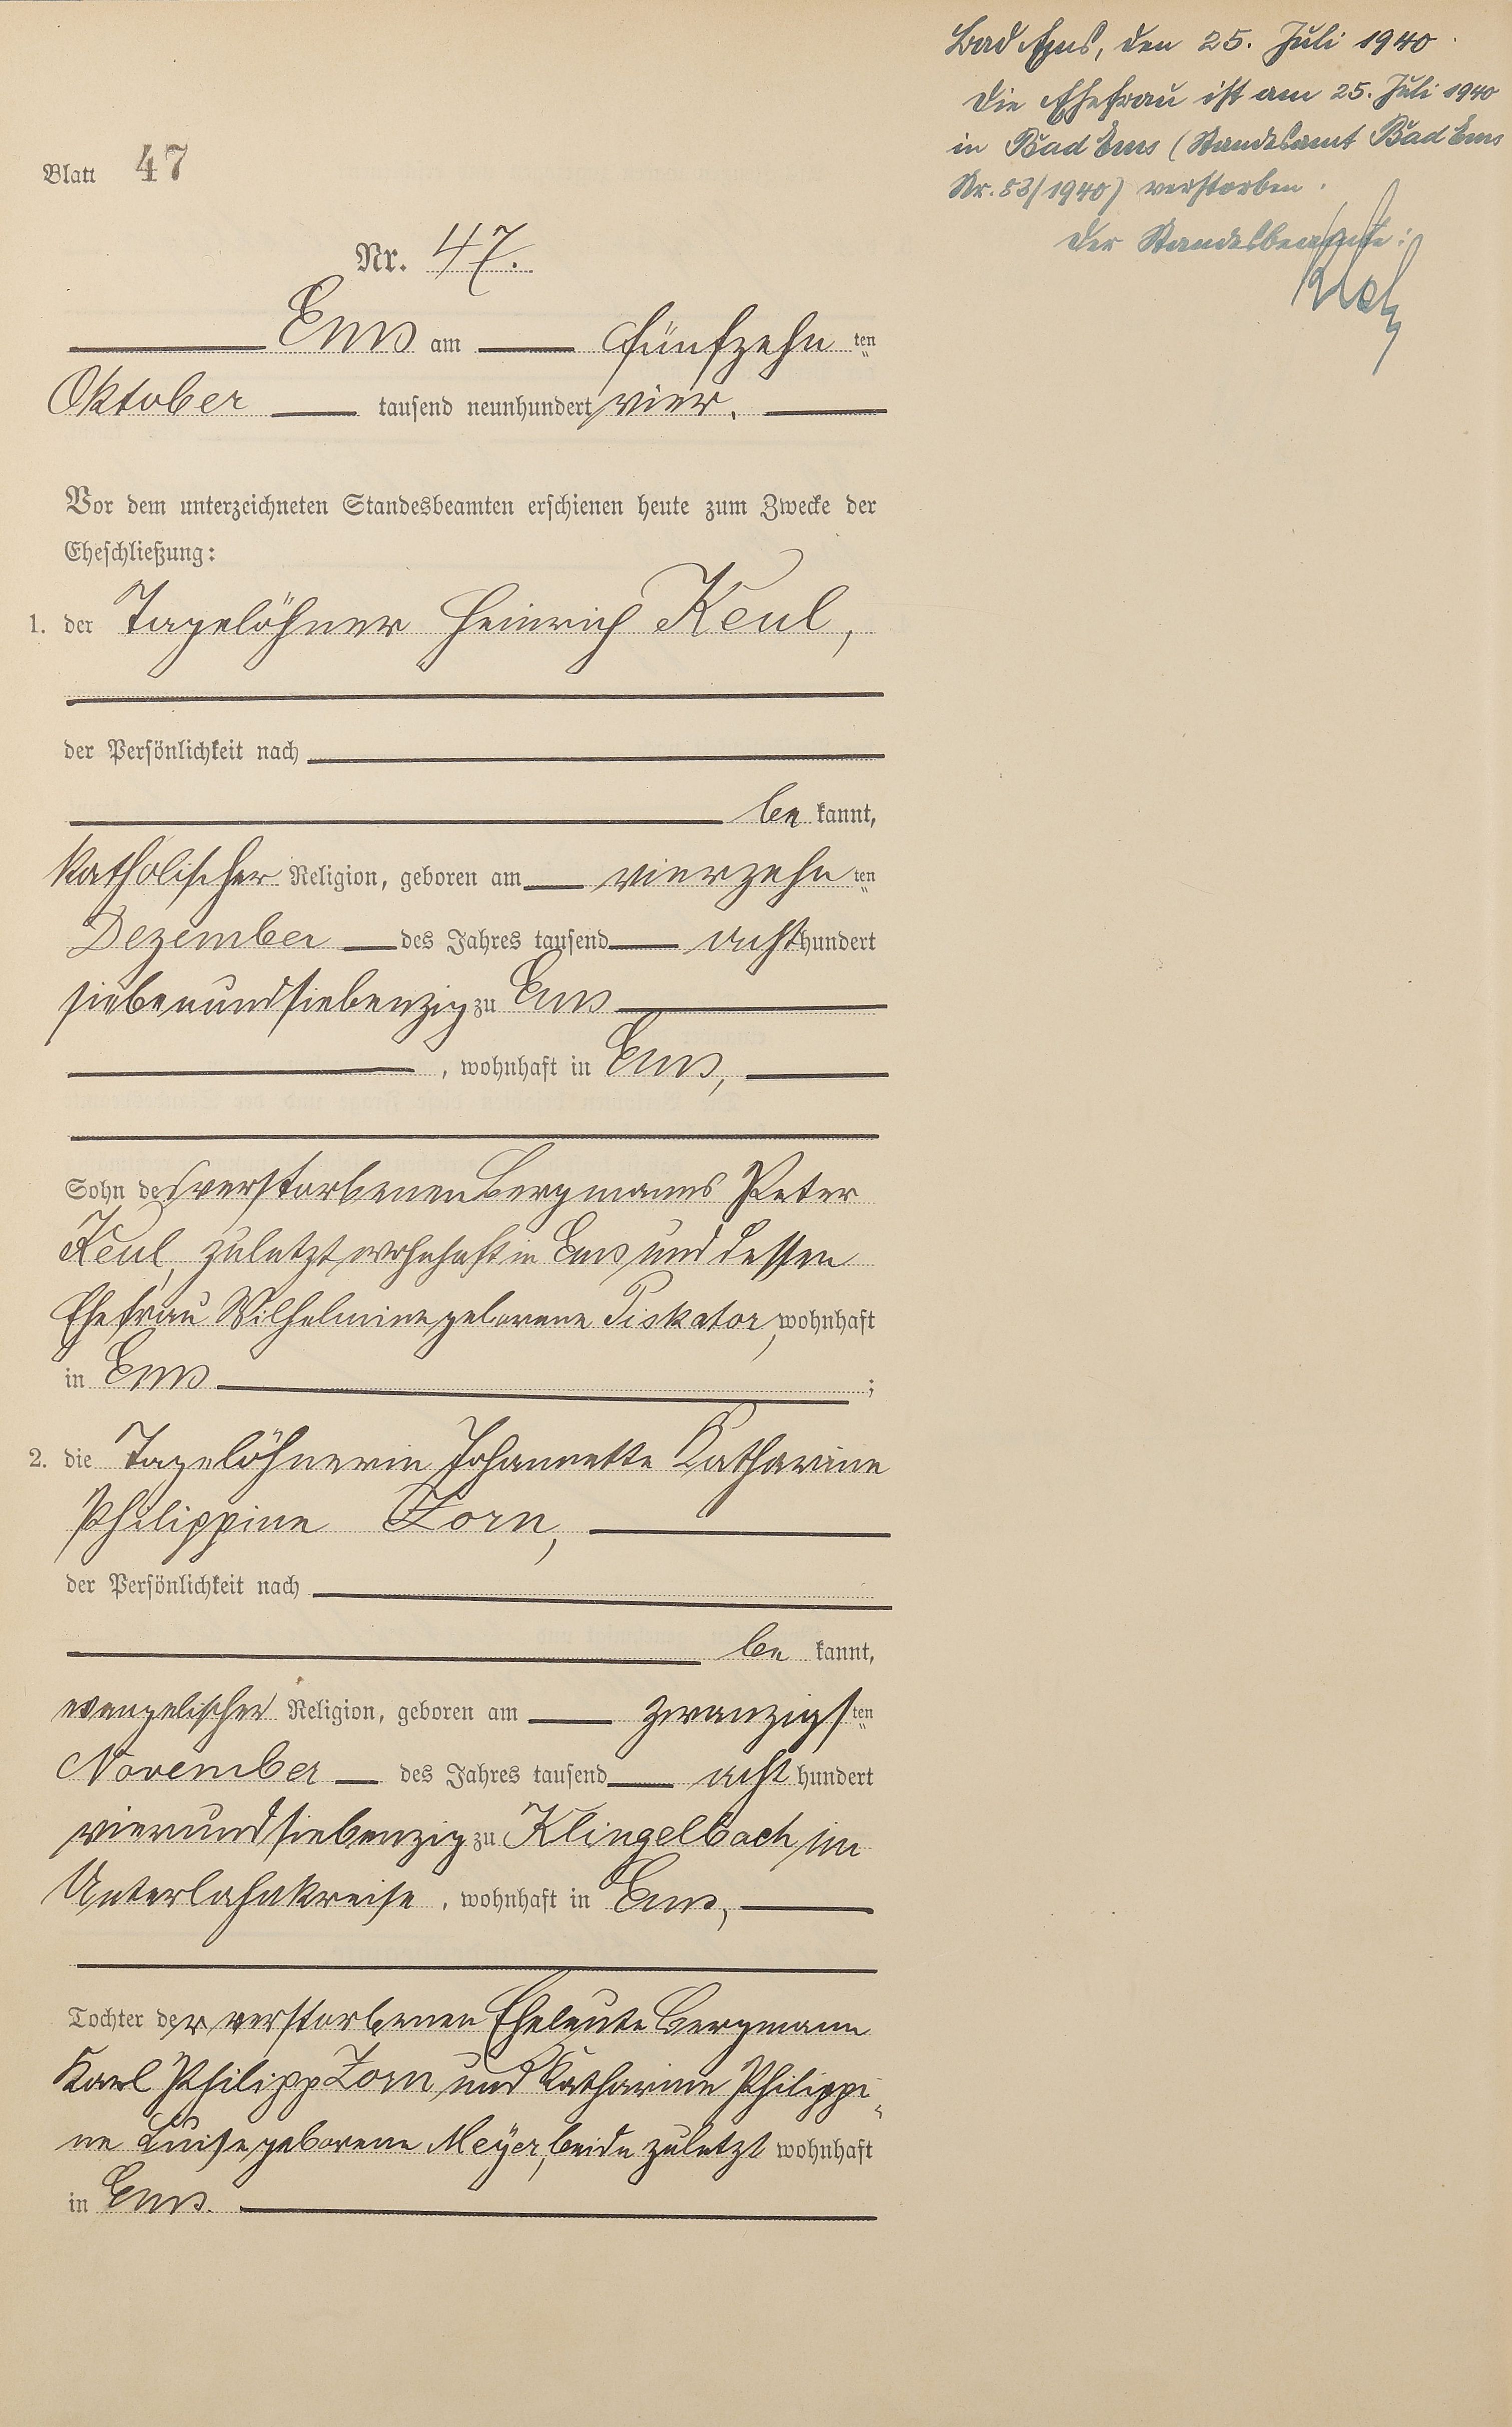 Blatt 47
Nr. 47.
Ems am fünfzehn ten
Oktober tausend neunhundert vier.
Vor dem unterzeichneten Standesbeamten erschienen heute zum Zwecke der
Eheschließung:
1. der Tagelöhner Heinrich Keul,
der Persönlichkeit nach
be kannt,
katholischer Religion, geboren am vierzehn ten
Dezember des Jahres tausend acht hundert
siebenundsiebenzig zu Ems
, wohnhaft in Ems,
Sohn des verstorbenen Bergmanns Peter
Keul, zuletzt wohnhaft in Ems und dessen
Ehefrau Wilhelmine geborene Piskator, wohnhaft
in Ems ;
2. die Tagelöhnerin Johannette Katharine
Philippine Zorn,
der Persönlichkeit nach
be kannt,
evangelischer Religion, geboren am zwanzigs ten
November des Jahres tausend acht hundert
vierundsiebenzig zu Klingelbach im
Unterlahnkreise , wohnhaft in Ems,
Tochter der verstorbenen Eheleute Bergmann
Karl Philipp Zorn und Katharine Philippi-
ne Luise geborene Meyer, beide zuletzt wohnhaft
in Ems.
Bad Ems, den 25. Juli 1940.
Die Ehefrau ist am 25. Juli 1940
in Bad Ems (Standesamt Bad Ems
Nr. 83/1940) verstorben.
Der Standesbeamte: